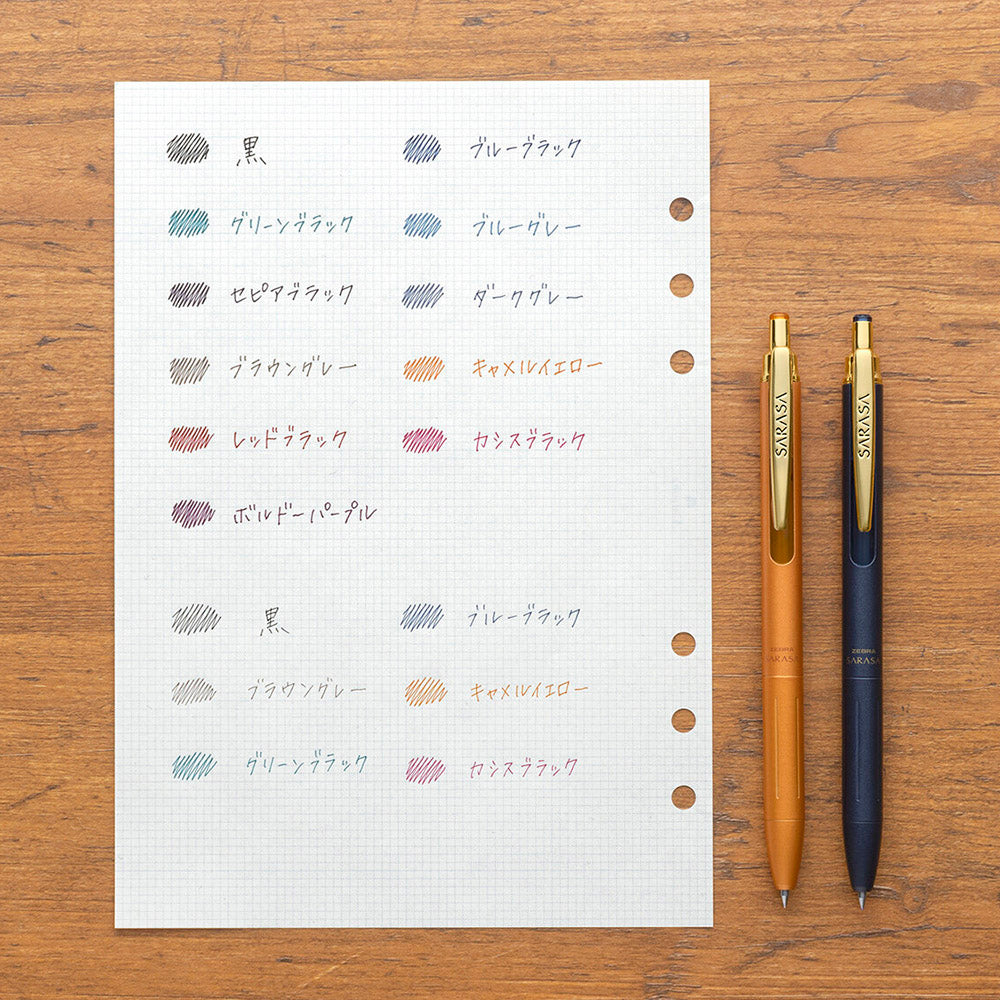 黒 ブルーブラック
グリーンブラック ブルーグレー
セピアブラック ダークグレー
ブラウングレー キャメルイエロー
レッドブラック カシスブラック
ボルドーパープル
黒 ブルーブラック
ブラウングレー キャメルイエロー
グリーンブラック カシスブラック
SARASA
SARASA
ZEBRA
SARASA
ZEBRA
SARASA